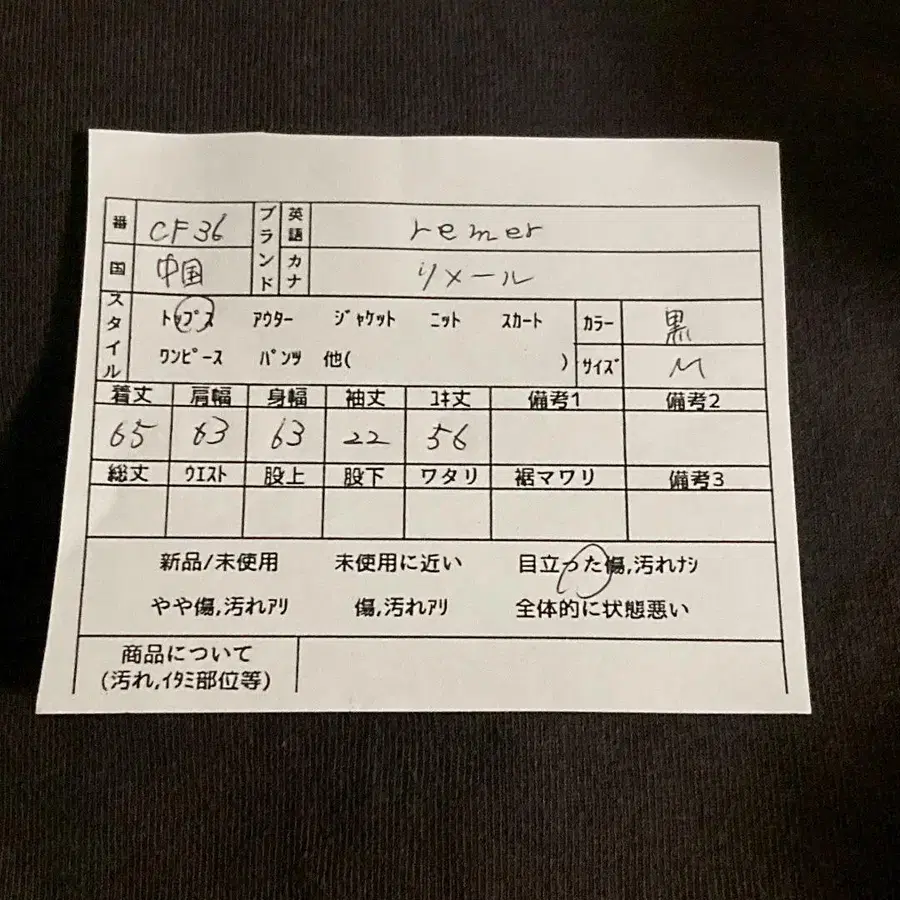 番 CF36 ブランド 英語 remer
国 中国 カナ リメール
スタイル トップス アウター ジャケット ニット スカート カラー 黒
ワンピース パンツ 他( ) サイズ M
着丈 肩幅 身幅 袖丈 ユキ丈 備考1 備考2
65 63 63 22 56
総丈 ウエスト 股上 股下 ワタリ 裾マワリ 備考3
新品/未使用 未使用に近い 目立った傷,汚れナシ
やや傷,汚れアリ 傷,汚れアリ 全体的に状態悪い
商品について
(汚れ,イタミ部位等)